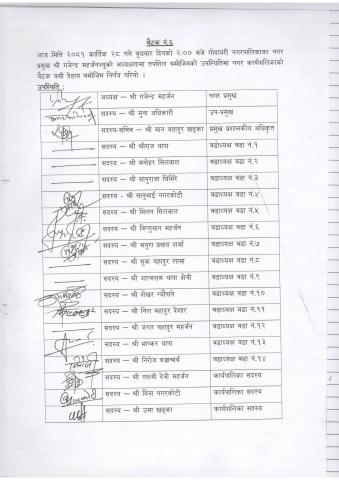 बैठक नं.६
आज मिति २०८१ कार्तिक २८ गते बुधबार दिनको २:०० बजे गोदावरी नगरपालिकाका नगर
प्रमुख श्री गजेन्द्र महर्जनज्यूको अध्यक्षतामा तपसिल बमोजिमको उपस्थितिमा नगर कार्यपालिकाको
बैठक बसी देहाय बमोजिम निर्णय गरियो ।
उपस्थिति :
अध्यक्ष – श्री गजेन्द्र महर्जन नगर प्रमुख
सदस्य – श्री मुना अधिकारी उप-प्रमुख
सदस्य-सचिव – श्री मान बहादुर खड्का प्रमुख प्रशासकीय अधिकृत
सदस्य – श्री श्रीराज थापा वडाध्यक्ष वडा नं.१
सदस्य – श्री मनोहर सिलवाल वडाध्यक्ष वडा नं.२
सदस्य – श्री सानुराजा घिमिरे वडाध्यक्ष वडा नं.३
सदस्य - श्री सानुभाई नगरकोटी वडाध्यक्ष वडा नं.४
सदस्य – श्री मिलन सिलवाल वडाध्यक्ष वडा नं.५
सदस्य – श्री विष्णुमान महर्जन वडाध्यक्ष वडा नं.६
सदस्य – श्री मथुरा प्रसाद शर्मा वडाध्यक्ष वडा नं.७
सदस्य – श्री सुक बहादुर लामा वडाध्यक्ष वडा नं.८
सदस्य – श्री आत्माराम थापा क्षेत्री वडाध्यक्ष वडा नं.९
सदस्य – श्री शेखर न्यौपाने वडाध्यक्ष वडा नं.१०
सदस्य – श्री निल बहादुर देशार वडाध्यक्ष वडा नं.११
सदस्य – श्री जगत बहादुर महर्जन वडाध्यक्ष वडा नं.१२
सदस्य – श्री भाष्कर थापा वडाध्यक्ष वडा नं.१३
सदस्य – श्री निरोज बज्राचार्य वडाध्यक्ष वडा नं.१४
सदस्य – श्री लक्ष्मी देवी महर्जन कार्यपालिका सदस्य
सदस्य – श्री विना नगरकोटी कार्यपालिका सदस्य
सदस्य – श्री उमा खड्का कार्यपालिका सदस्य